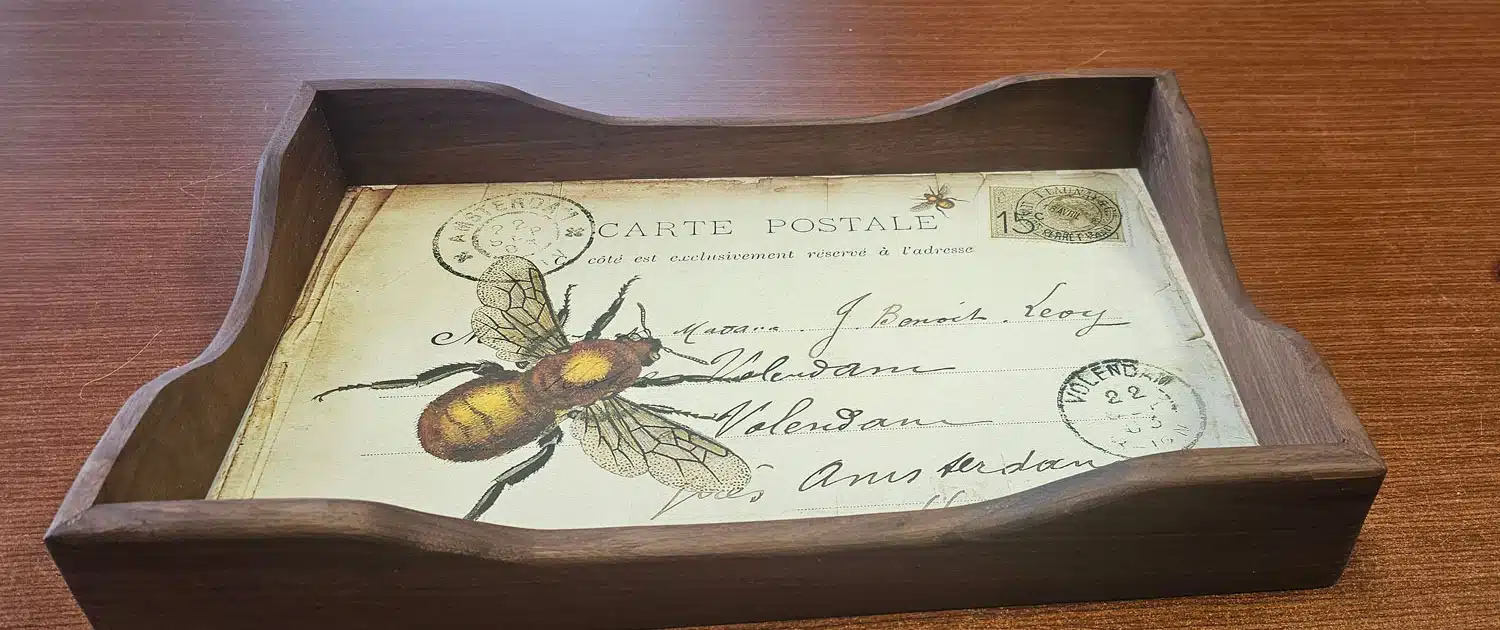 AMSTERDAM
CARTE POSTALE
15
côté est exclusivement réservé à l'adresse
J. Benoit . Levy
Volendam
Volendam
près Amsterdam
VOLENDAM
22